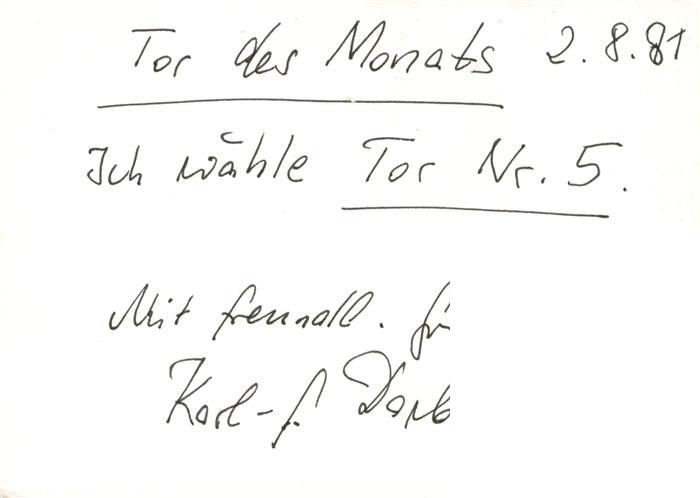 Tor des Monats 2.8.81
Ich wähle Tor Nr. 5.
Mit freundl.
Karl-f.